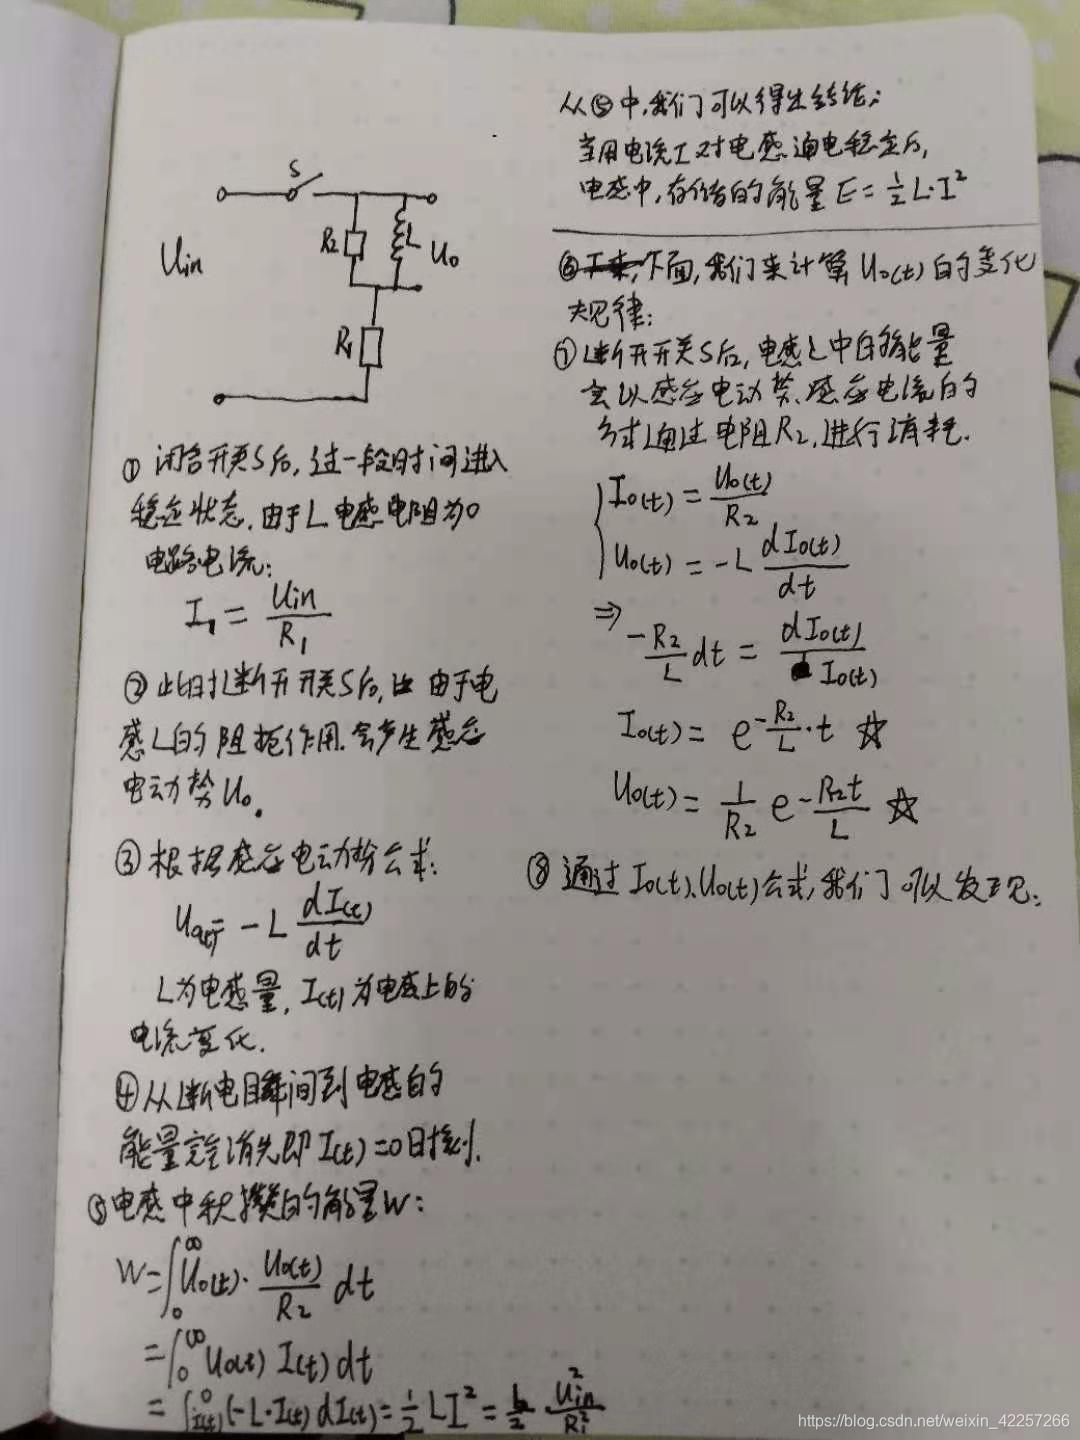 S
R2
L
Uin
Uo
R1
① 闭合开关S后，过一段时间进入
稳定状态，由于L电感电阻为0
电路电流：
I1 = Uin / R1
② 此时断开开关S后， 由于电
感L的阻扼作用，会产生感应
电动势Uo。
③ 根据感应电动势公式：
= -L dI(t) / dt
L为电感量，I(t)为电感上的
电流变化.
④ 从断电瞬间到电感的
能量完全消失即I(t)=0时刻.
⑤ 电感中积攒的能量W：
W = ∫₀^∞ Uo(t)· Uo(t) / R2 dt
= ∫₀^∞ Uo(t) I(t) dt
= ∫_I(t)^0 (-L·I(t) dI(t) = 1/2 LI² = L/2 Uin² / R1²
从⑤中，我们可以得出结论：
当用电流I对电感通电稳定后，
电感中，存储的能量E = 1/2 L·I²
⑥ 下面，我们来计算Uo(t)的变化
规律：
⑦ 断开开关S后，电感L中的能量
会以感应电动势、感应电流的
方式通过电阻R2，进行消耗.
Io(t) = Uo(t) / R2
Uo(t) = -L dIo(t) / dt
⇒ -R2/L dt = dIo(t) / Io(t)
Io(t) = e^(-R2/L·t) ☆
Uo(t) = 1/R2 e^(-R2t/L) ☆
⑧ 通过Io(t)、Uo(t)公式，我们可以发现：
https://blog.csdn.net/weixin_42257266